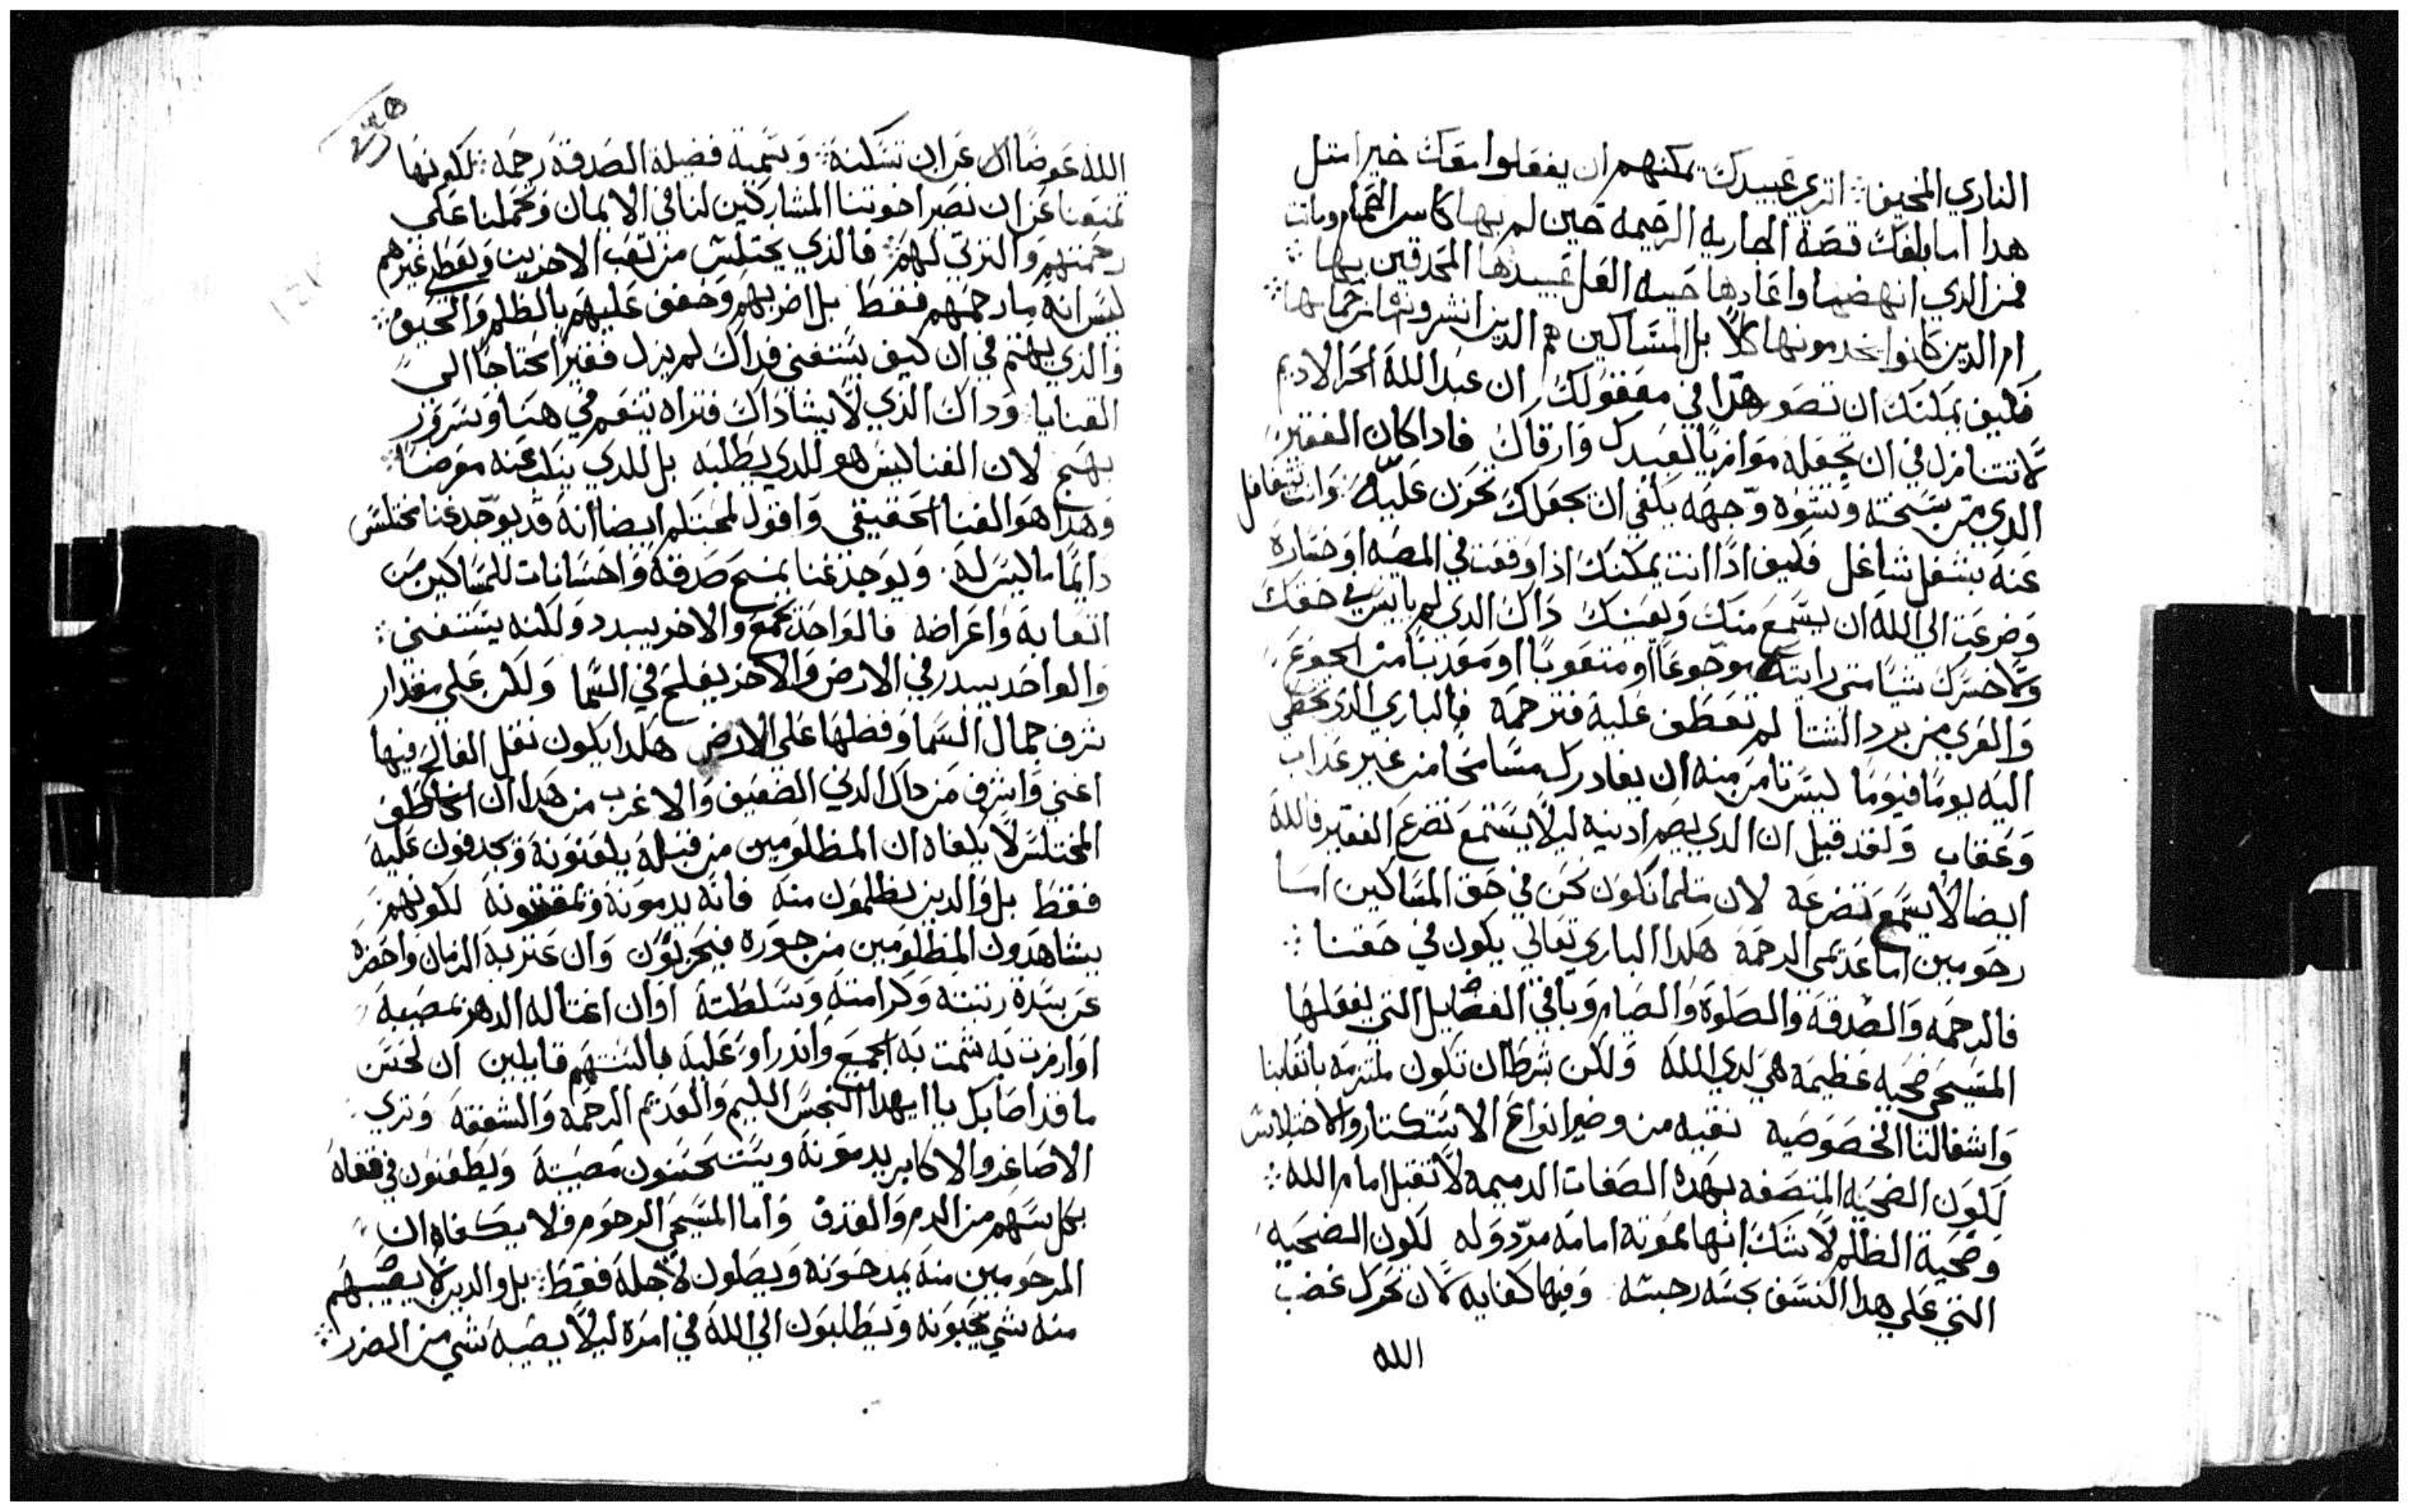 الناري المخيف ⁘ اتري عبيدك يمكنهم ان يفعلوا معك خيرا مثل
هدا اما بلغك قصة الجاريه الرحيمه حين لم بها كاس الحمام وماتت
فمن الدي انهضها واعادها حييه العل عبيدها المحدقين بها ⁘
ام الدين كانوا يخدمونها كلا بل المساكين هم الدين انشروها برحمتها ⁘
فكيف يمكنك ان تصور هدا في معقولك ان عبد الله الحر الاديم
لا تتنازل في ان تجعله موازيا لعبيدك وارقاك فادا كان الفقير
الدي من سحنته وتشوه وجهه يكفي ان يجعلك تحزن عليه وانت تتغافل
عنه بشغل شاغل فكيف ادا انت يمكنك اذا وقعت في المصيبه او خساره
وضرعت الي الله ان يسمع منك ويعينك داك الدي لم ياييس في حقك
ولا خسرك شيا متي رايته موجوعا او متعوبا او معدبا من الجوع
والعري من برد الشتا لم تعطف عليه فترحمه فالباري الدي تخطي
اليه يوما فيوما ليس تامن منه ان يغادرك مسامحا من غير عداب
وعقاب ولقد قيل ان الدي يصم ادنيه ليلا يستمع تضرع الفقير فالله
ايضا لا يسمع تضرعه لان مثلما نكون نحن في حق المساكين اما
رحومين اما عديمي الرحمة هكدا الباري تعالي يكون في حقنا ⁘
فالرحمه والصدقة والصلوة والصيام وباقي الفضايل التي يفعلها
المسيحي ضحيه عظيمه هي لدي الله ولكن بشرط ان تكون ملتزمه باتعابنا
واشغالنا الخصوصيه نقيه من وضر انواع الاستكتار والاختلاس
لكون الضحيه المتصفه بهده الصفات الدميمه لا تقبل امام الله ⁘
وضحية الظلم لا شك انها ممقوتة امامه مردوله لكون الضحيه
التي علي هدا النسق نجسه رجسه وفيها كفايه لان تحرك غضب
الله
الله عوضا عن ان تسكنه ⁘ وتسمية فضيلة الصدقة رحمه ⁘ لكونها
تمنعنا عن ان نضر اخوتنا المشاركين لنا في الايمان وتحملنا علي
رحمتهم والترتي لهم ⁘ فالدي يختلس من تعب الاخرين ويعطي غيرهم
ليس انه ما رحمهم فقط بل اضر بهم وخفف عليهم بالظلم والحيف ⁘
والدي يهتم في ان كيف يستغني فداك لم يزل فقيرا محتاجا الي
القنايا وداك الدي لا يشا داك فتراه يتنعم في هنا وسرور
بهج لان الغنا ليس هو للدي يطلبه بل للدي ينكث عنه معرضا ⁘
وهدا هو الغنا الحقيقي واقول لمحبتكم ايضا انه قد يوجد غنا يختلس
دايما ما ليس له ⁘ ويوجد غنا يمنح صدقة واحسانات للمساكين من
اتعابه واعراضه فالواحد يجمع والاخر يبدد ولكنه يستغني ⁘
والواحد يبدر في الارض والاخر يفلح في السما ولكن علي مقدار
شرف جمال السما وفضلها علي الارض هكدا يكون نقل الفالح فيها
اغني واشرف من داك الدني الضعيف والاغرب من هدا ان الخاطف
المختلس لا يكفاه ان المظلومين من قبله يلعنونه ويجدفون عليه
فقط بل والدين يظلمون منه فانه يدمونه ويمقتونه لكونهم
يشاهدون المظلومين من جوره فيحزنون وان عتر به الزمان واحضره
عن سدة رتبته وكرامته وسلطته او ان اغتاله الدهر بمصيبة
او ازمرت به شمت به الجميع وانذراو عليه بالسنتهم قايلين ان لحسن
ما قد اصابك يا ايهدا النجس اللييم والعديم الرحمة والشفقة وتري
الاصاغر والاكابر يدمونه ويستحسنون مصيبته ويطعنون في قفاه
بكل سهم من الدم والقدف واما المسيحي الرحوم فلا يكفاه ان
المرحومين منه يمدحونه ويصلون لاجله فقط ⁘ بل والدين لا يصيبهم
منه شي يحبونه ويطلبون الي الله في امره ليلا يصيبه شي من الضرر ⁘